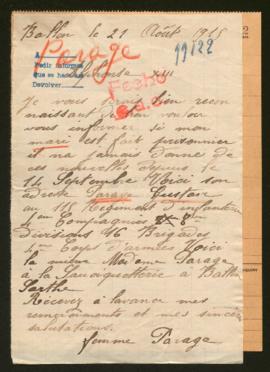 Ballon le 21 Août 1915
19122
A
Parage
Pedir informes
Que se haga
Devolver
Alphonse XIII
Fecho
Je vous serais bien recon
naissant de bien vouloir
vous informer si mon
mari est fait prisonnier
il na jamais donné de
ces nouvelles depuis le
14 Septembre Voici son
adresse Parage Gustave
au 115 Regiment d'infanterie
Compagnies 8me
Divisions 16 Brigades
4me Corps d'armées Voici
la mienne Madame Parage
à la à Ballon
Sarthe
Recevez à lavance mes
remerciments et mes sincères
salutations.
femme Parage